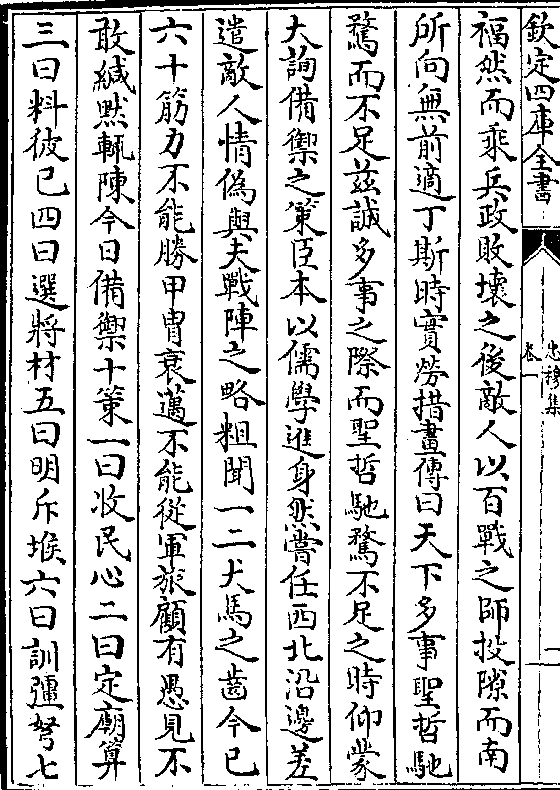 欽定四庫全書
忠穆集
卷一
福然而乘兵政敗壞之後敵人以百戰之師投隙而南
所向無前適丁斯時實勞措畫傳曰天下多事聖哲馳
騖而不足兹誠多事之際而聖哲馳騖不足之時仰蒙
大詢備禦之策臣本以儒學進身然嘗任西北沿邊差
遣敵人情偽與夫戰陣之略粗聞一二犬馬之齒今已
六十筋力不能勝甲胄衰邁不能從軍旅顧有愚見不
敢緘黙輒陳今日備禦十策一曰收民心二曰定廟算
三曰料彼己四曰選將材五曰明斥堠六曰訓彊弩七